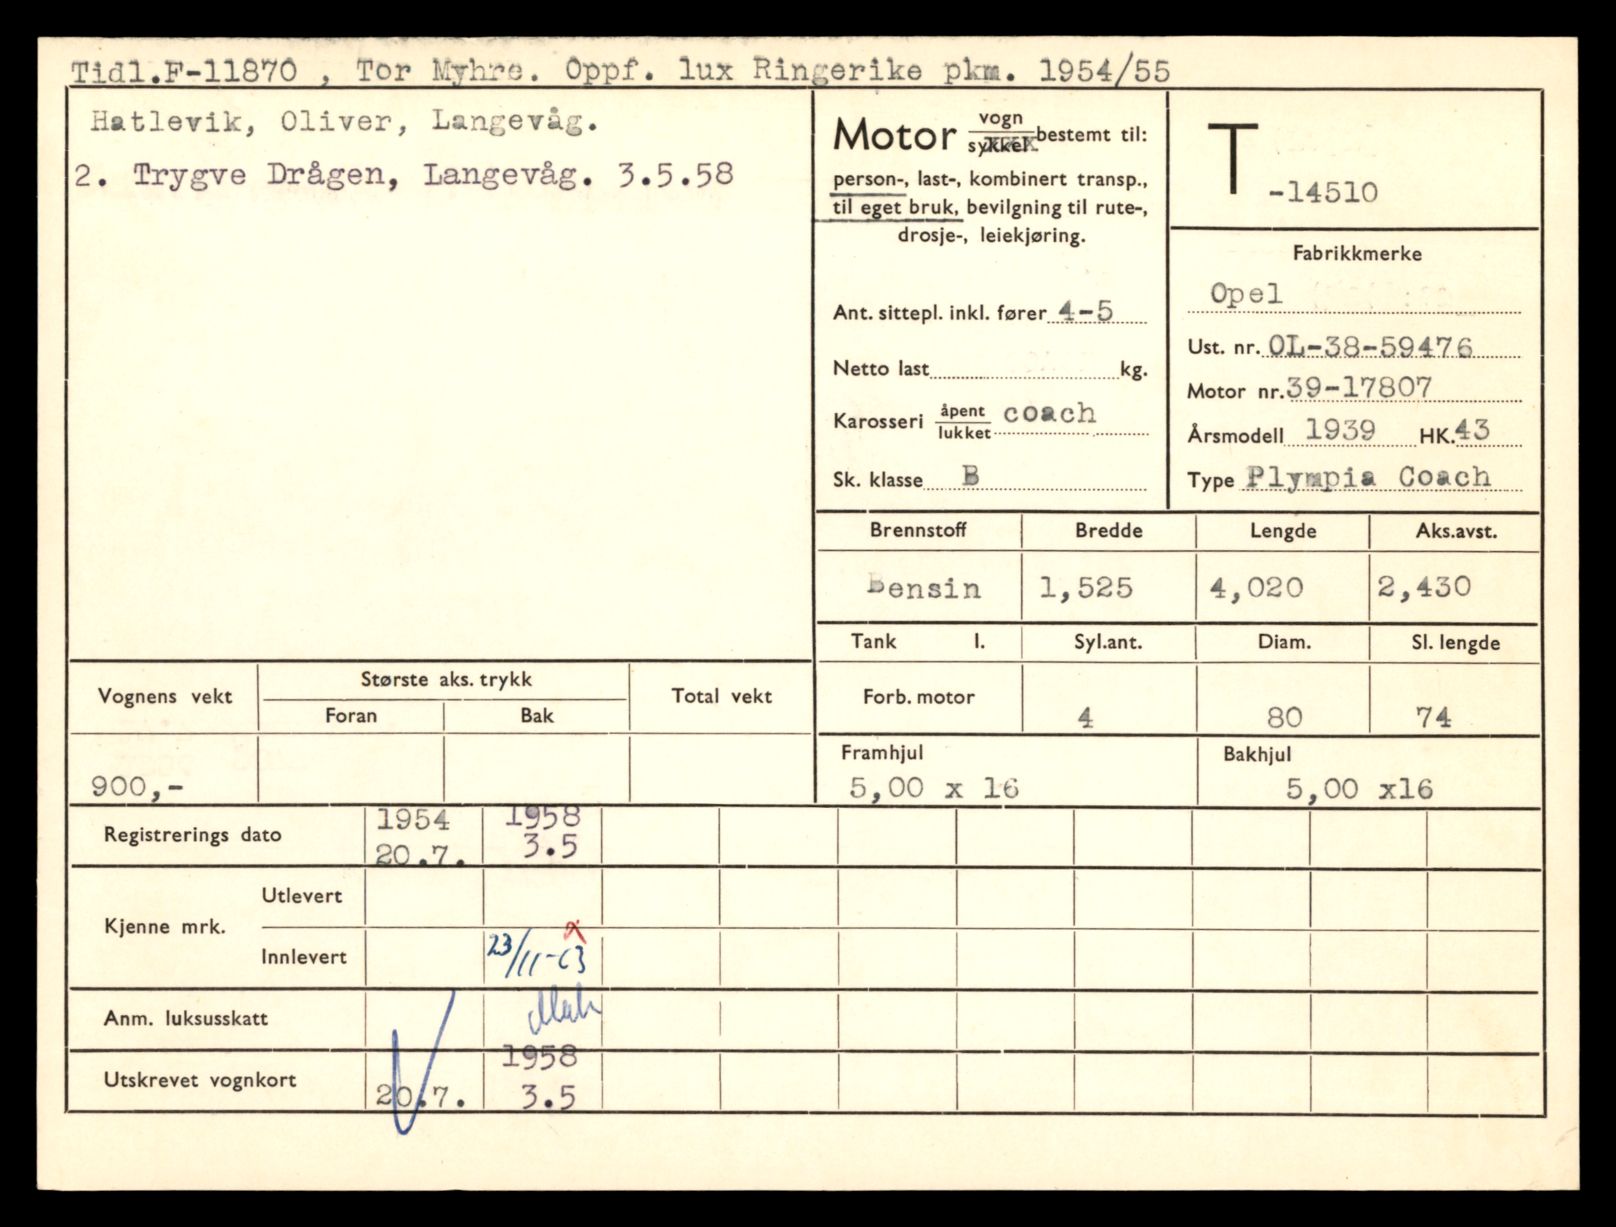 Tidl.F-11870 , Tor Myhre. Oppf. lux Ringerike pkm. 1954/55
Hatlevik, Oliver, Langevåg.
2. Trygve Drågen, Langevåg. 3.5.58
Motor vogn sykkel bestemt til:
person-, last-, kombinert transp.,
til eget bruk, bevilgning til rute-,
drosje-, leiekjøring.
Ant. sittepl. inkl. fører 4-5
Netto last kg.
Karosseri åpent lukket coach
Sk. klasse B
T
-14510
Fabrikkmerke
Opel
Ust. nr. OL-38-59476
Motor nr. 39-17807
Årsmodell 1939 HK. 43
Type Plympia Coach
Brennstoff Bredde Lengde Aks.avst.
Bensin 1,525 4,020 2,430
Tank l. Syl.ant. Diam. Sl. lengde
Forb. motor 4 80 74
Framhjul Bakhjul
5,00 x 16 5,00 x16
Vognens vekt Største aks. trykk Total vekt
Foran Bak
900,-
Registrerings dato 1954 1958
20.7. 3.5
Kjenne mrk. Utlevert
Innlevert 23/11-63
Anm. luksusskatt
Utskrevet vognkort 1958
20.7. 3.5